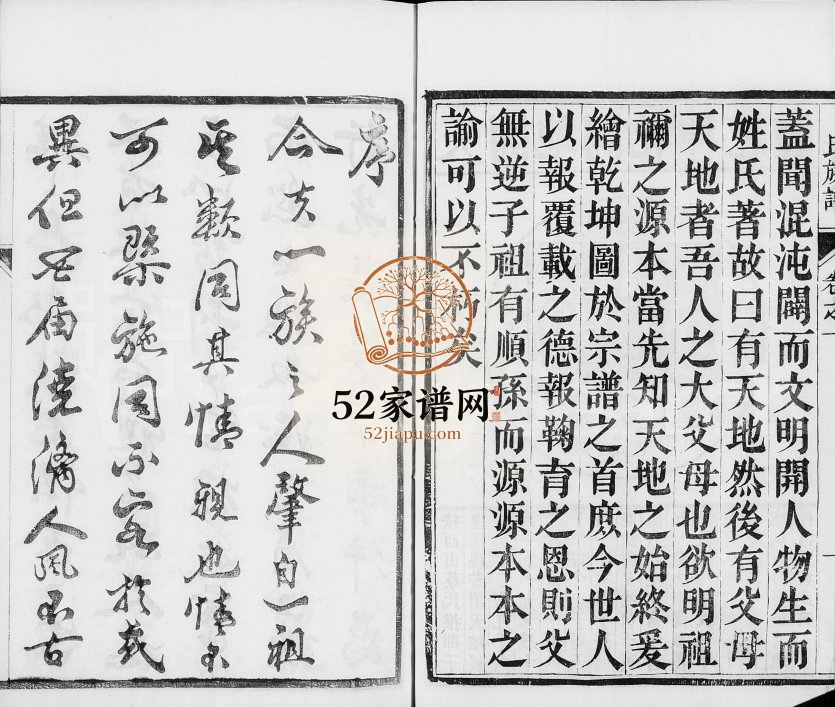 氏族譜 卷之一
蓋聞混沌闢而文明開人物生而
姓氏著故曰有天地然後有父母
天地者吾人之大父母也欲明祖
禰之源本當先知天地之始終爰
繪乾坤圖於宗譜之首庶今世人
以報覆載之德報鞠育之恩則父
無逆子祖有順孫而源源本本之
論可以不朽矣
序
今夫一族之人肇自一祖
其類同其情親也情不
可以槩施固不容於或
異但世屆澆漓人風不古
52家谱网
52jiapu.com